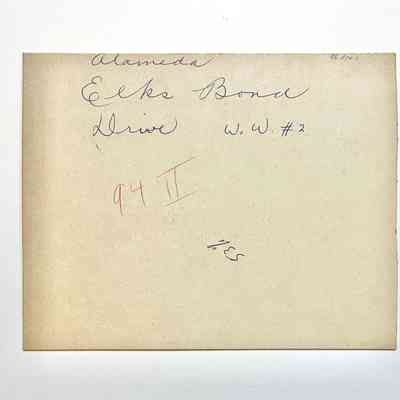 Alameda
Elks Bond
Drive W.W. #2
94 II